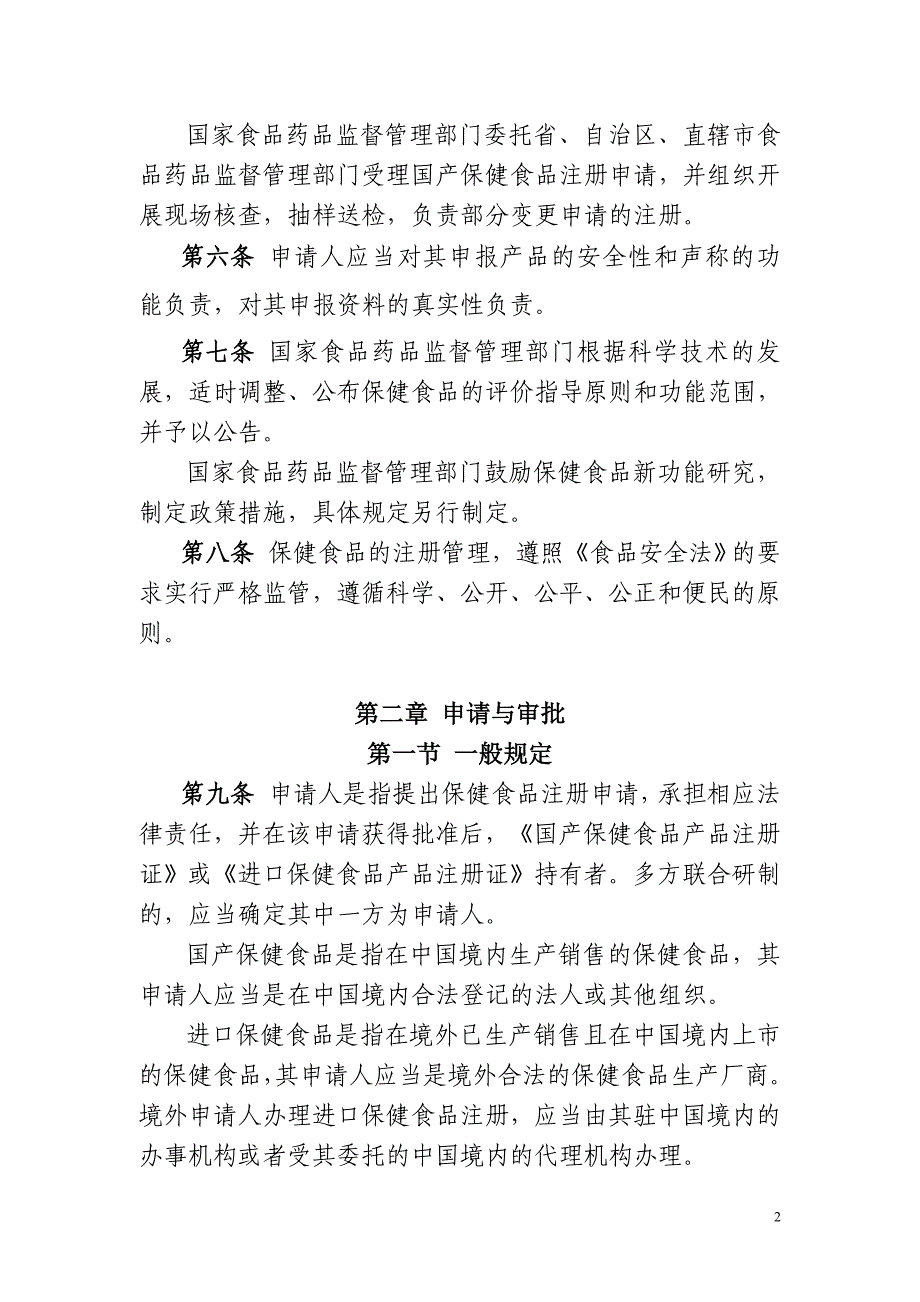 国家食品药品监督管理部门委托省、自治区、直辖市食
品药品监督管理部门受理国产保健食品注册申请，并组织开
展现场核查，抽样送检，负责部分变更申请的注册。
第六条 申请人应当对其申报产品的安全性和声称的功
能负责，对其申报资料的真实性负责。
第七条 国家食品药品监督管理部门根据科学技术的发
展，适时调整、公布保健食品的评价指导原则和功能范围，
并予以公告。
国家食品药品监督管理部门鼓励保健食品新功能研究，
制定政策措施，具体规定另行制定。
第八条 保健食品的注册管理，遵照《食品安全法》的要
求实行严格监管，遵循科学、公开、公平、公正和便民的原
则。
第二章 申请与审批
第一节 一般规定
第九条 申请人是指提出保健食品注册申请，承担相应法
律责任，并在该申请获得批准后，《国产保健食品产品注册
证》或《进口保健食品产品注册证》持有者。多方联合研制
的，应当确定其中一方为申请人。
国产保健食品是指在中国境内生产销售的保健食品，其
申请人应当是在中国境内合法登记的法人或其他组织。
进口保健食品是指在境外已生产销售且在中国境内上市
的保健食品，其申请人应当是境外合法的保健食品生产厂商。
境外申请人办理进口保健食品注册，应当由其驻中国境内的
办事机构或者受其委托的中国境内的代理机构办理。
2